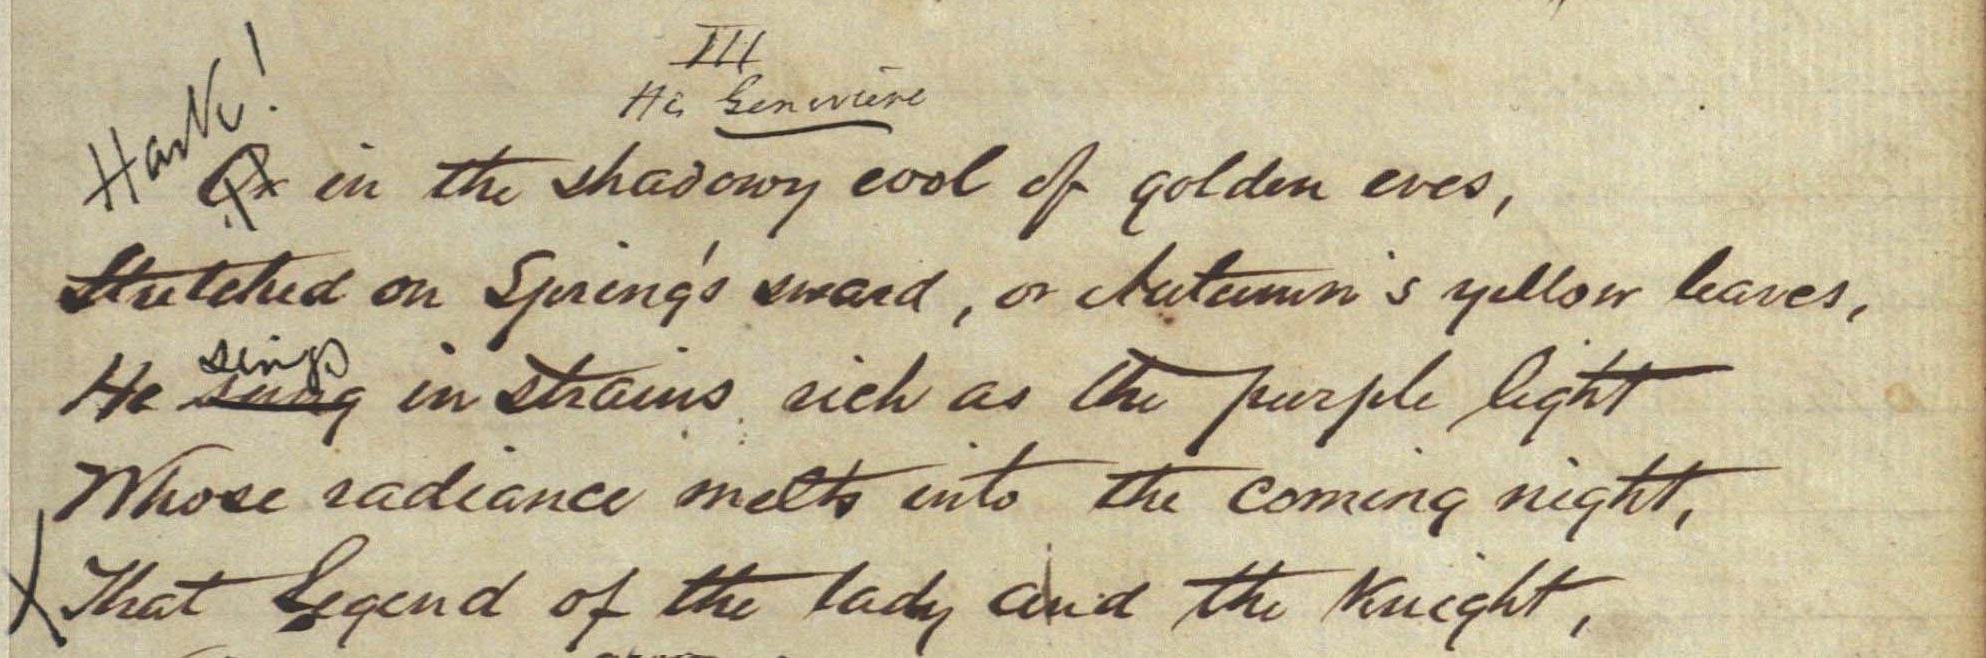 III
His Genevieve
Hark!
Or in the shadowy cool of golden eves,
Stretched on Spring's sward, or Autumn's yellow leaves,
sings
He sung in strains rich as the purple light
Whose radiance melts into the coming night,
X That Legend of the lady and the Knight,